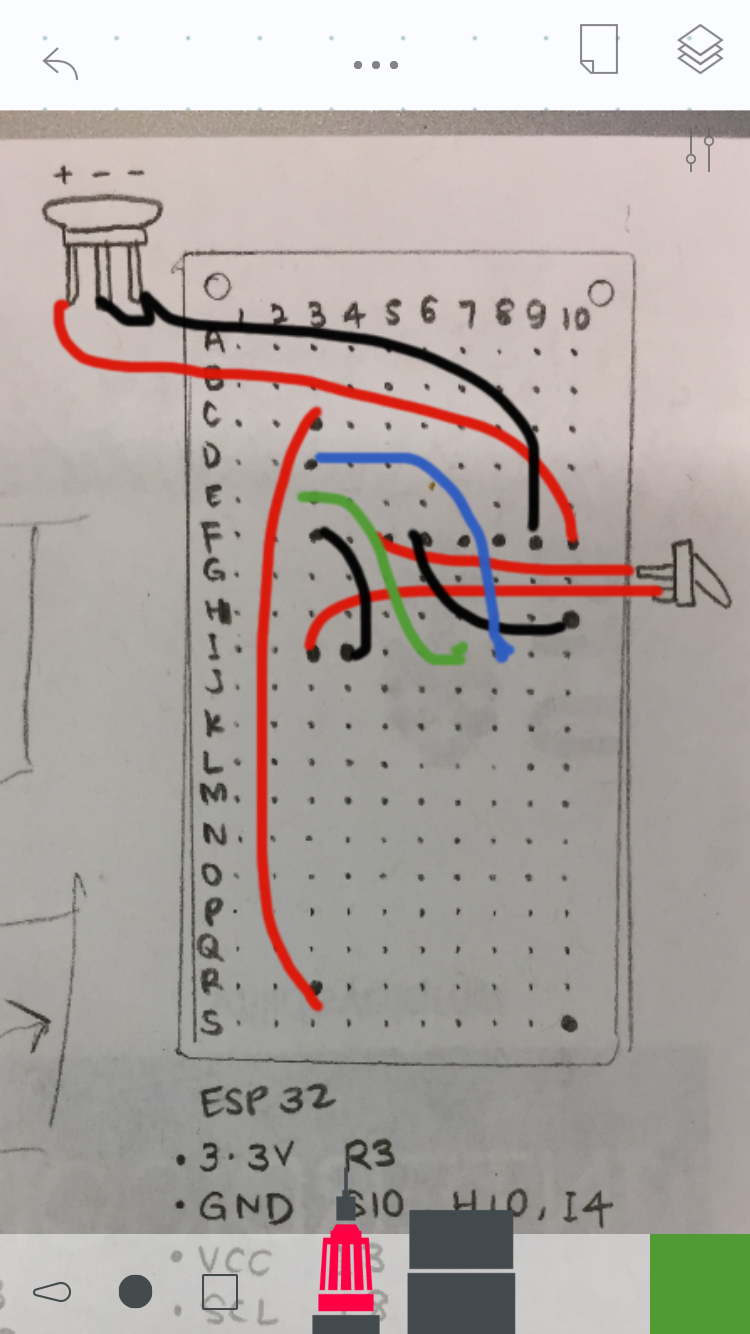 + - -
1 2 3 4 5 6 7 8 9 10
A
B
C
D
E
F
G
H
I
J
K
L
M
N
O
P
Q
R
S
ESP 32
• 3.3V R3
• GND S10 H10, I4
• VCC
• SCL